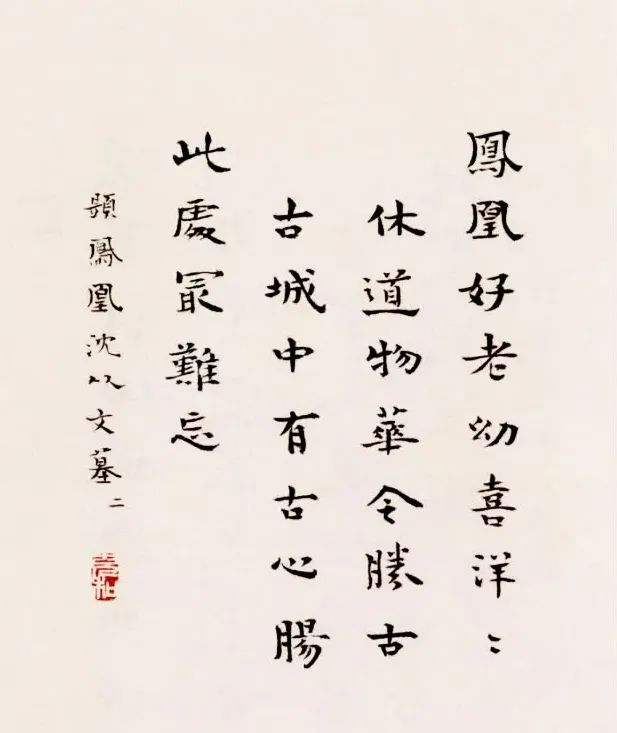 鳳凰好老幼喜洋〻
休道物華令勝古
古城中有古心腸
此處冣難忘
題鳳凰沈从文墓二